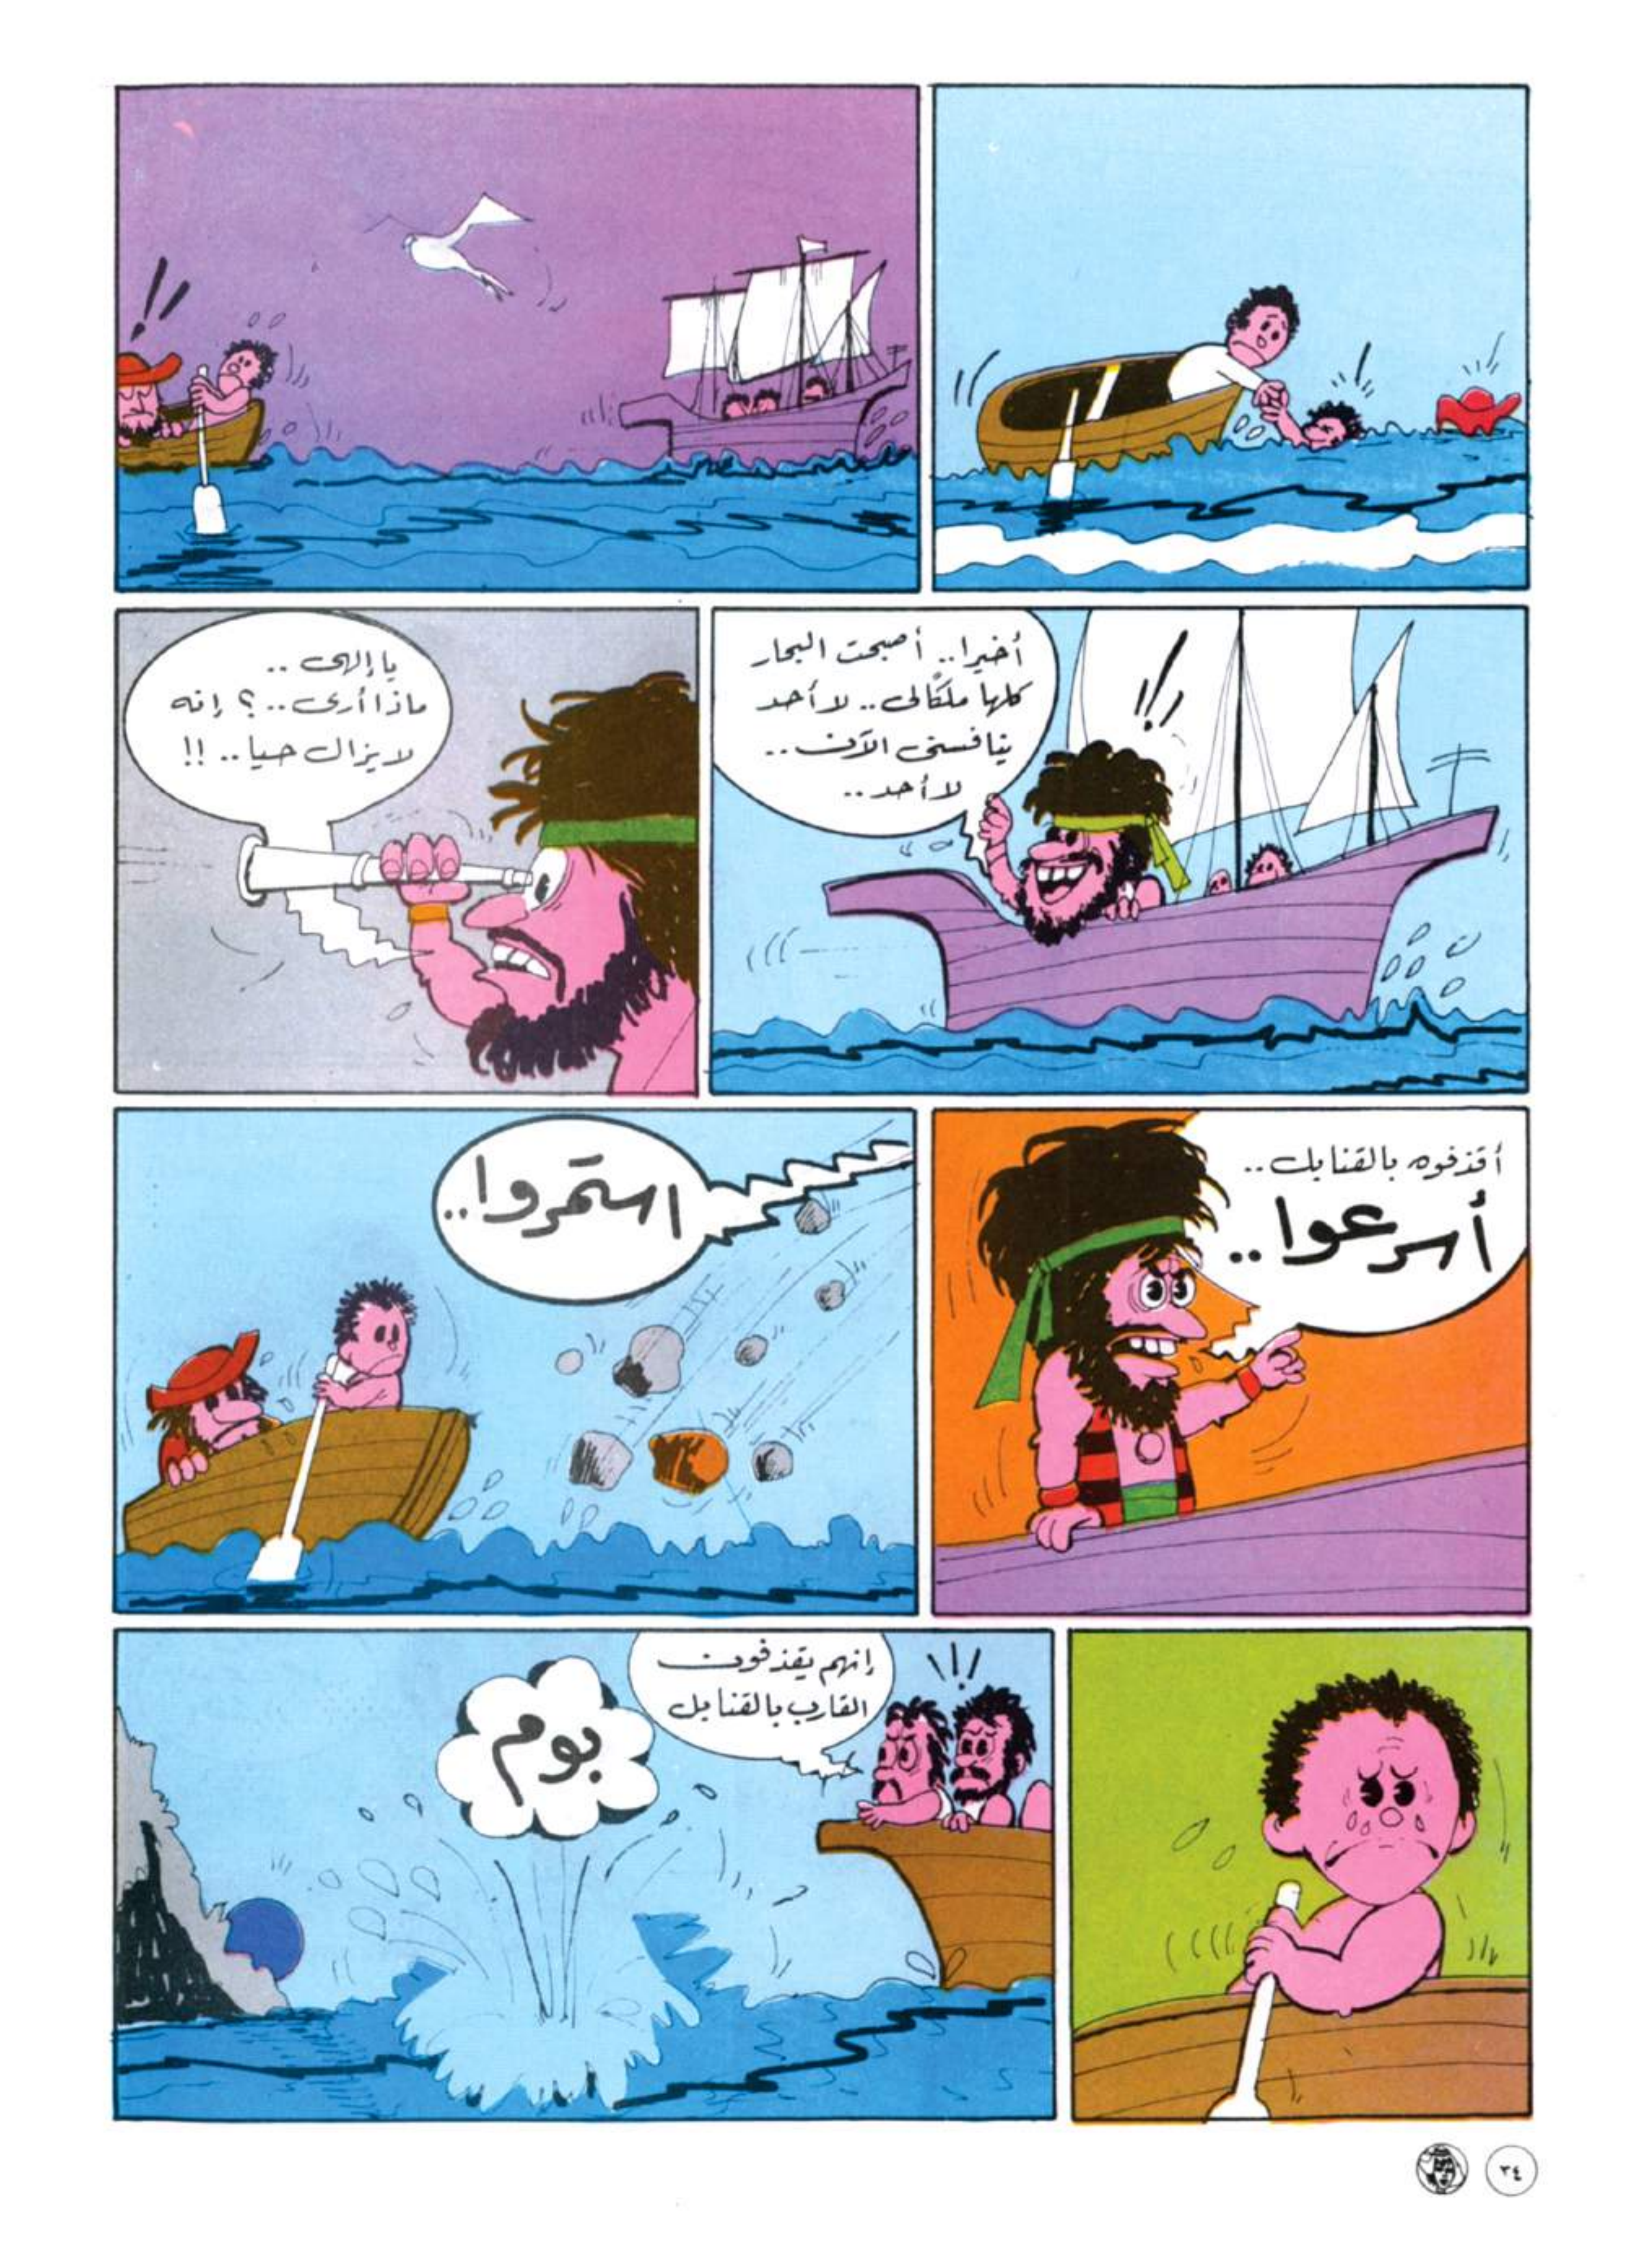 أخيرا.. أصبحت البحار
كلها ملكًا لى.. لا أحد
ينافسنى الآن..
لا أحد..
يا إلهى ..
ماذا أرى..؟ إنه
لا يزال حيا..!!
أقذفوه بالقنابل..
أسرعوا..
استمروا..
إنهم يقذفون
القارب بالقنابل
بوم
٣٤